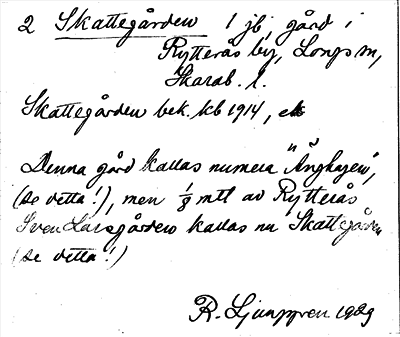 2 Skattegården 1 jb, gård i
Rytterås by, Longs sn,
Skarab. l.
Skattegården bek. kb 1914, ek
Denna gård kallas numera "Änghagen",
(se detta!), men 1/8 mtl av Rytterås
Sven Larsgården kallas nu Skattegården
(se detta!)
R. Ljunggren 1929